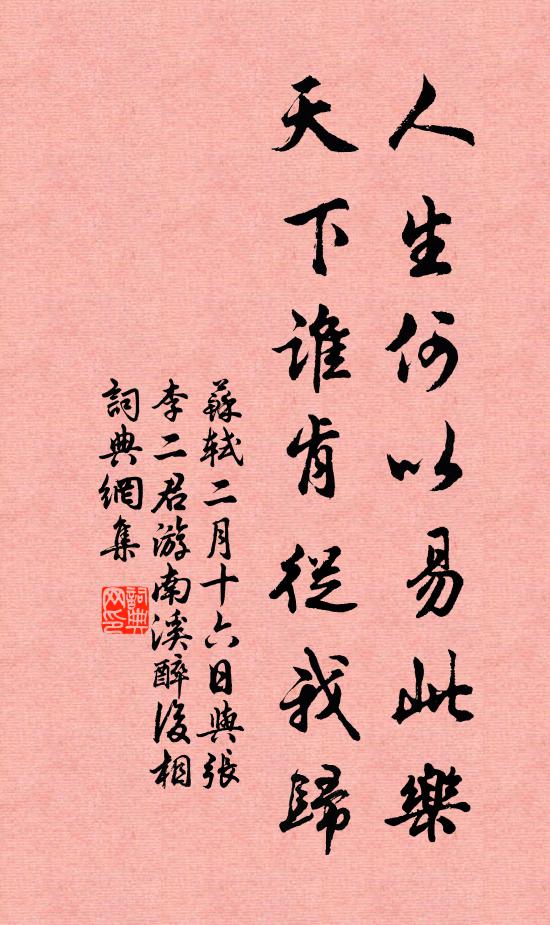 人生何以易此樂
天下誰肯從我歸
蘇軾二月十六日與張
李二君游南溪醉後相
詞典網集
詞典
网印